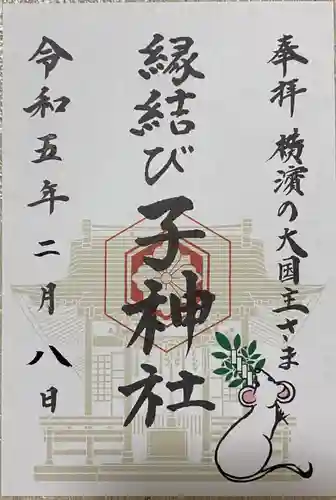 奉拝 横濱の大国主さま
縁結び子神社
令和五年二月八日